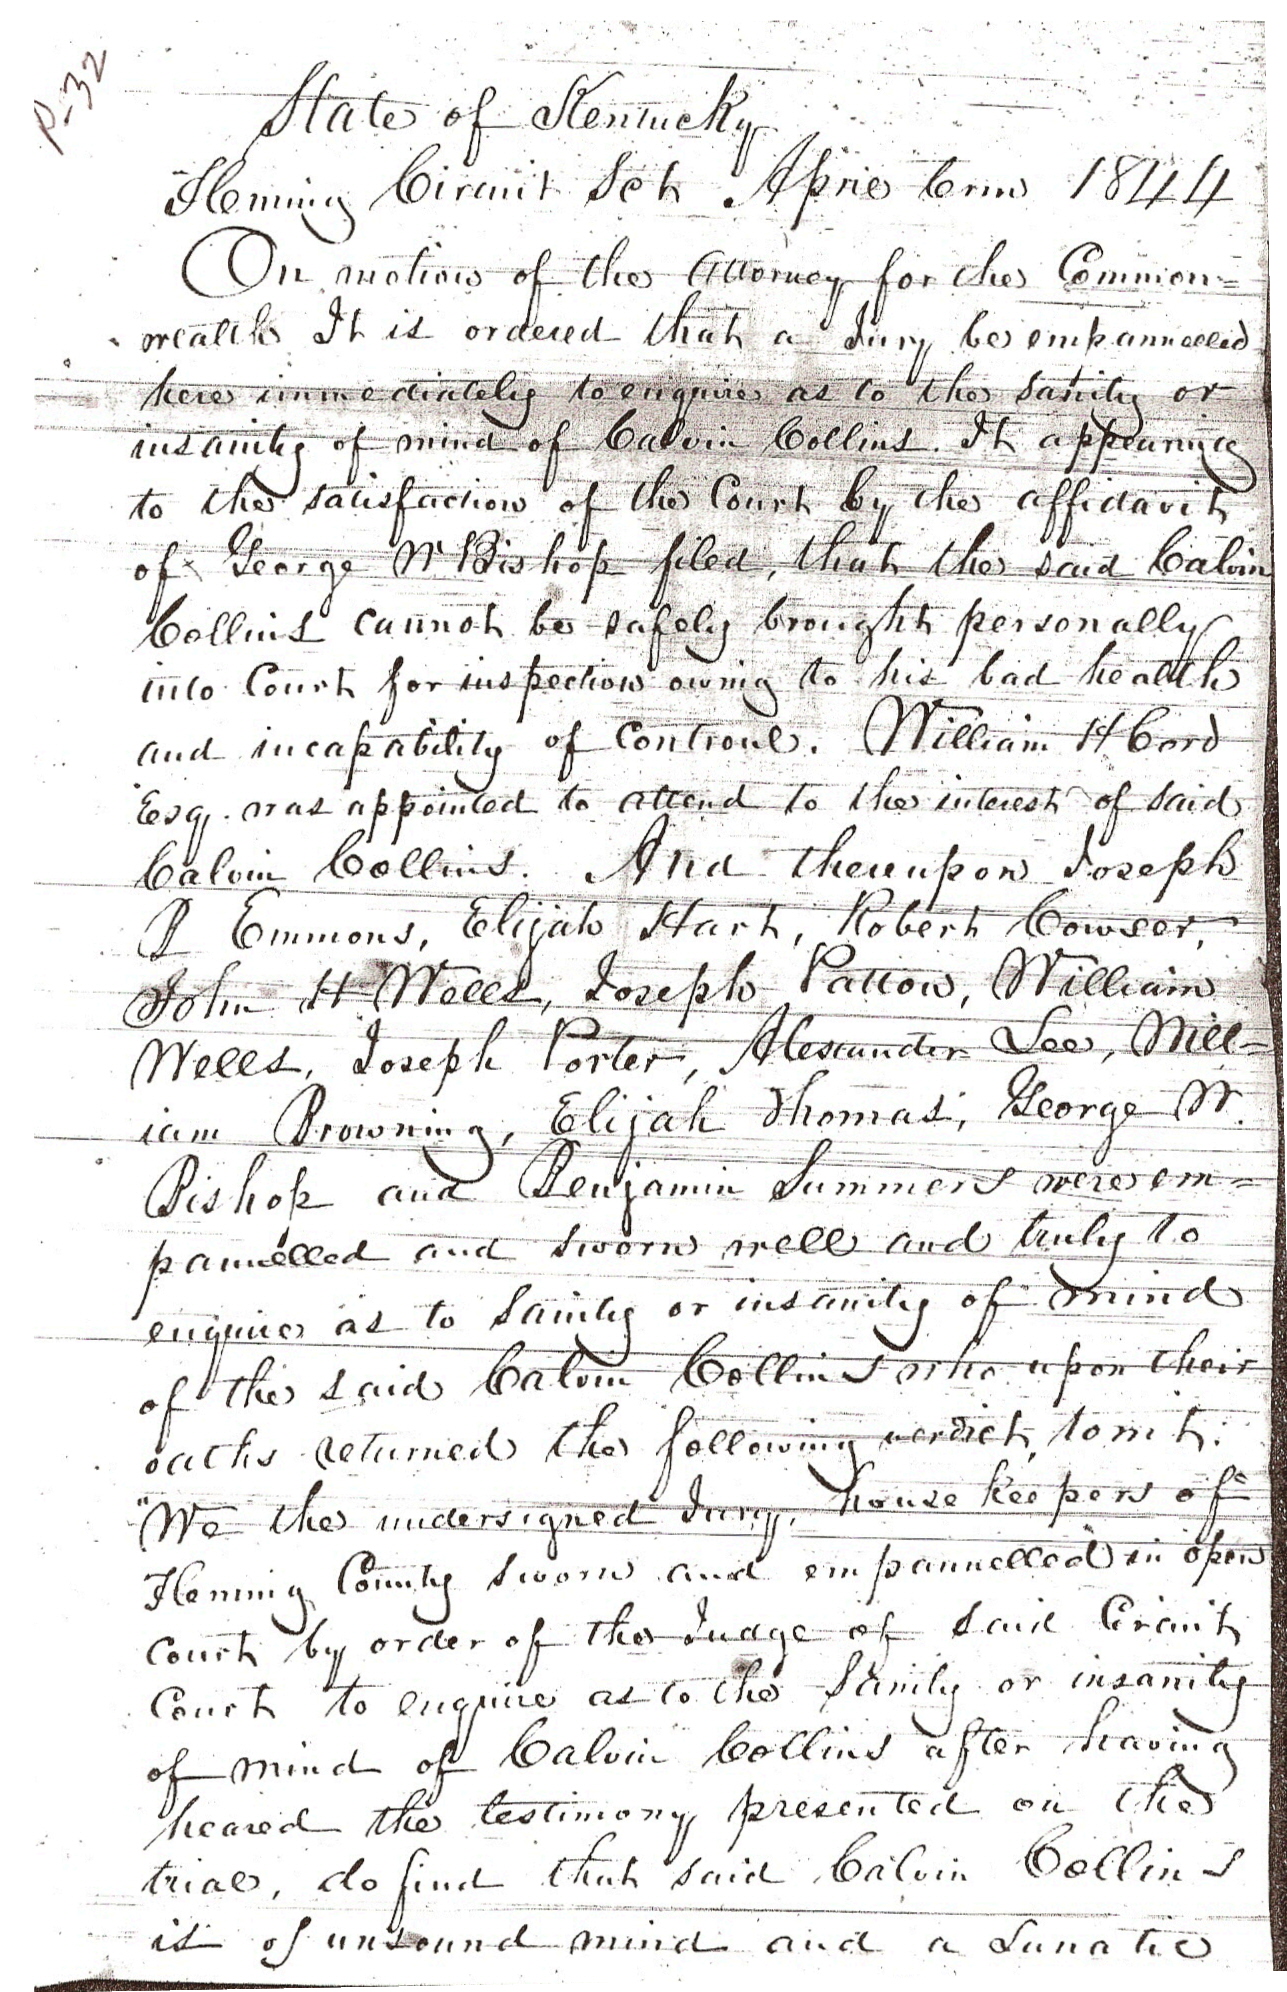 P-32
State of Kentucky
Fleming Circuit Sct April Term 1844
On motion of the Attorney for the Common=
wealth It is ordered that a Jury be empannelled
here immediately to enquire as to the sanity or
insanity of mind of Calvin Collins. It appearing
to the satisfaction of the Court by the affidavit
of George W Bishop filed, that the said Calvin
Collins cannot be safely brought personally
into Court for inspection owing to his bad health
and incapability of Controul. William H Cord
Esqr. was appointed to attend to the interest of said
Calvin Collins. And thereupon Joseph
P Emmons, Elijah Hart, Robert Cowser,
John H Wells, Joseph Patton, William
Wells, Joseph Porter, Alexander Lee, Will=
iam Browning, Elijah Thomas, George W.
Bishop and Benjamin Summers were em=
pannelled and sworn well and truly to
enquire as to Sanity or insanity of mind
of the said Calvin Collins who upon their
oaths returned the following verdict, towit:
"We the undersigned Jury, house keepers of
Fleming County sworn and empannelled in open
Court by order of the Judge of said Circuit
Court to enquire as to the Sanity or insanity
of mind of Calvin Collins after having
heared the testimony presented on the
trial, do find that said Calvin Collins
is of unsound mind and a Lunatic